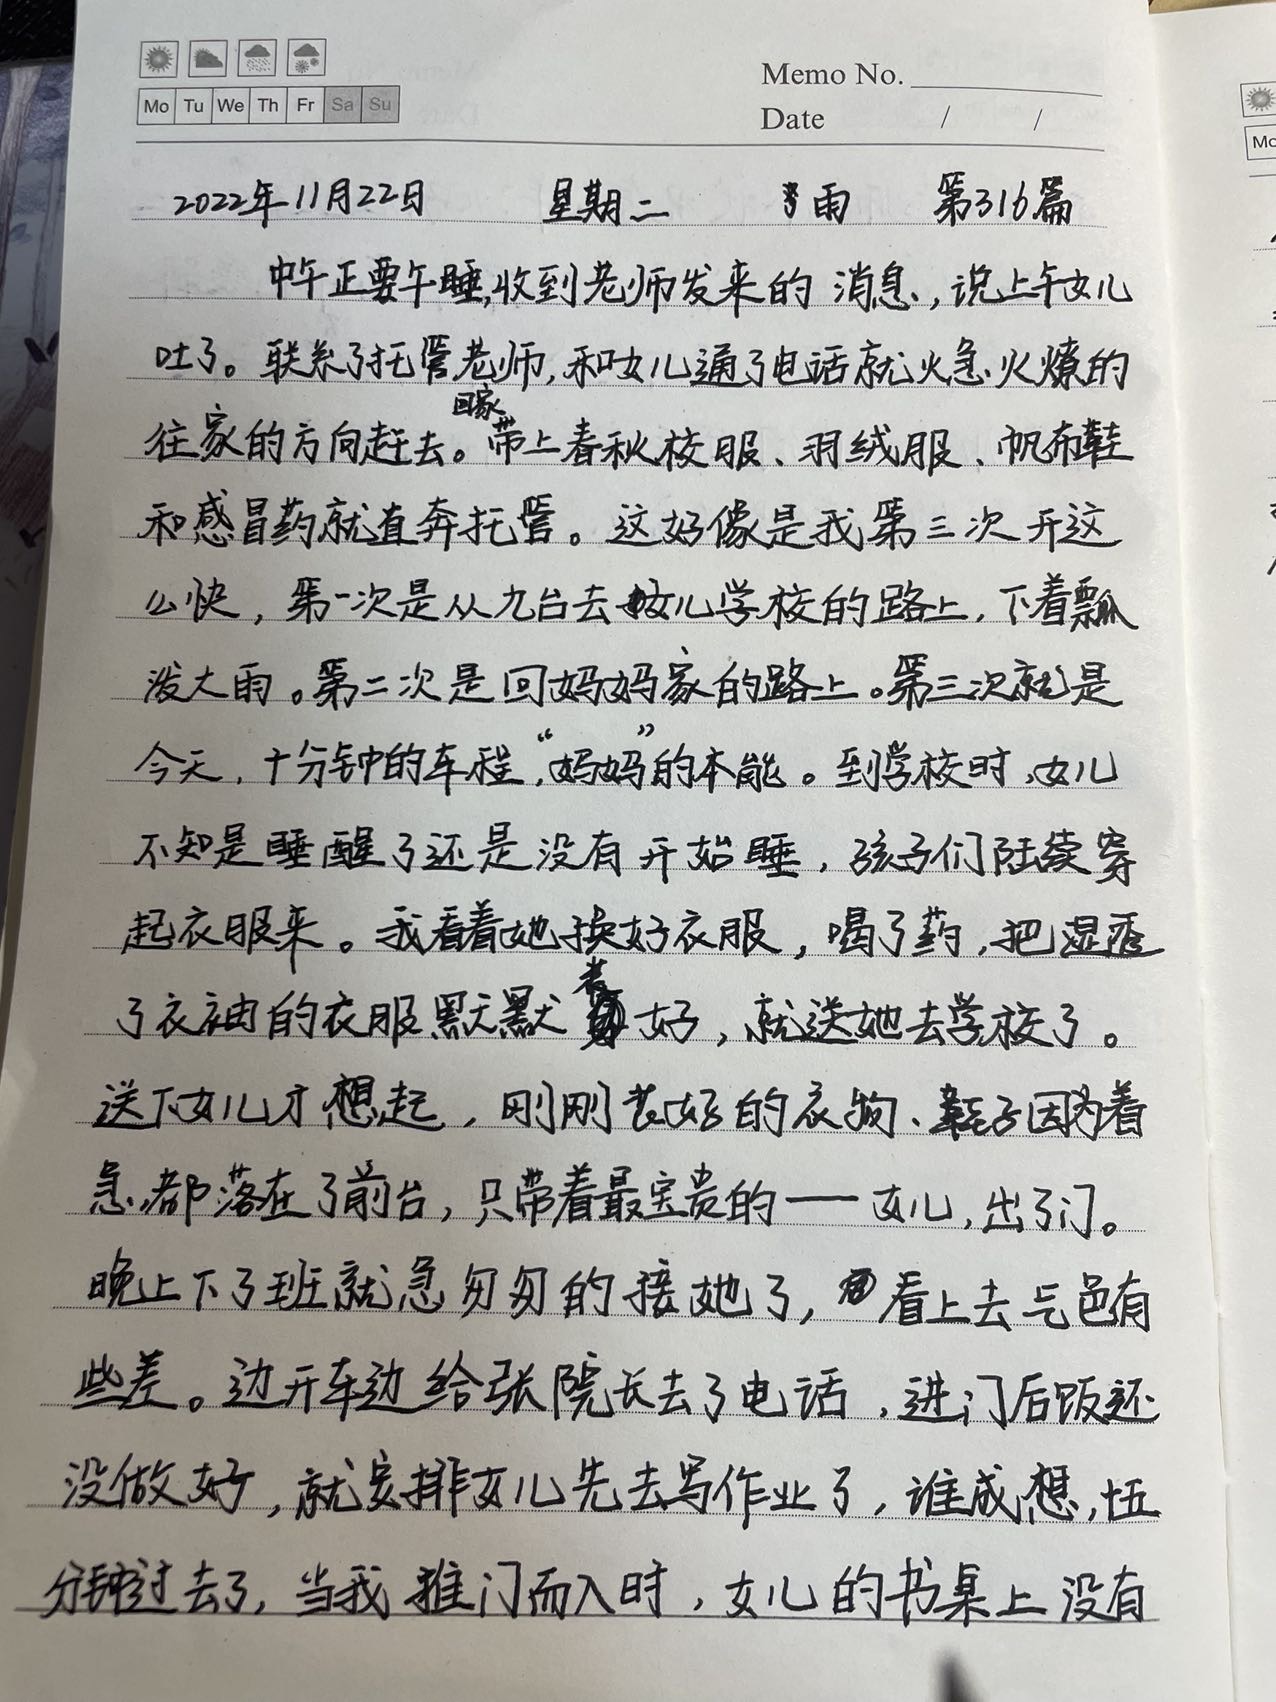 Mo Tu We Th Fr Sa Su
Memo No.
Date / /
2022年11月22日 星期二 雨 第316篇
中午正要午睡,收到老师发来的消息,说上午女儿
吐了。联系了托管老师,和女儿通了电话就火急火燎的
往家的方向赶去。回家带上春秋校服、羽绒服、帆布鞋
和感冒药就直奔托管。这好像是我第三次开这
么快,第一次是从九台去女儿学校的路上,下着瓢
泼大雨。第二次是回妈妈家的路上。第三次就是
今天,十分钟的车程,“妈妈”的本能。到学校时,女儿
不知是睡醒了还是没有开始睡,孩子们陆续穿
起衣服来。我看着她换好衣服,喝了药,把湿透
了衣袖的衣服默默装好,就送她去学校了。
送下女儿才想起,刚刚装好的衣物、鞋子因为着
急都落在了前台,只带着最宝贵的——女儿,出了门。
晚上下了班就急匆匆的接她了,看上去气色有
些差。边开车边给张院长去了电话,进门后饭还
没做好,就安排女儿先去写作业了,谁成想,十五
分钟过去了,当我推门而入时,女儿的书桌上没有
Mo